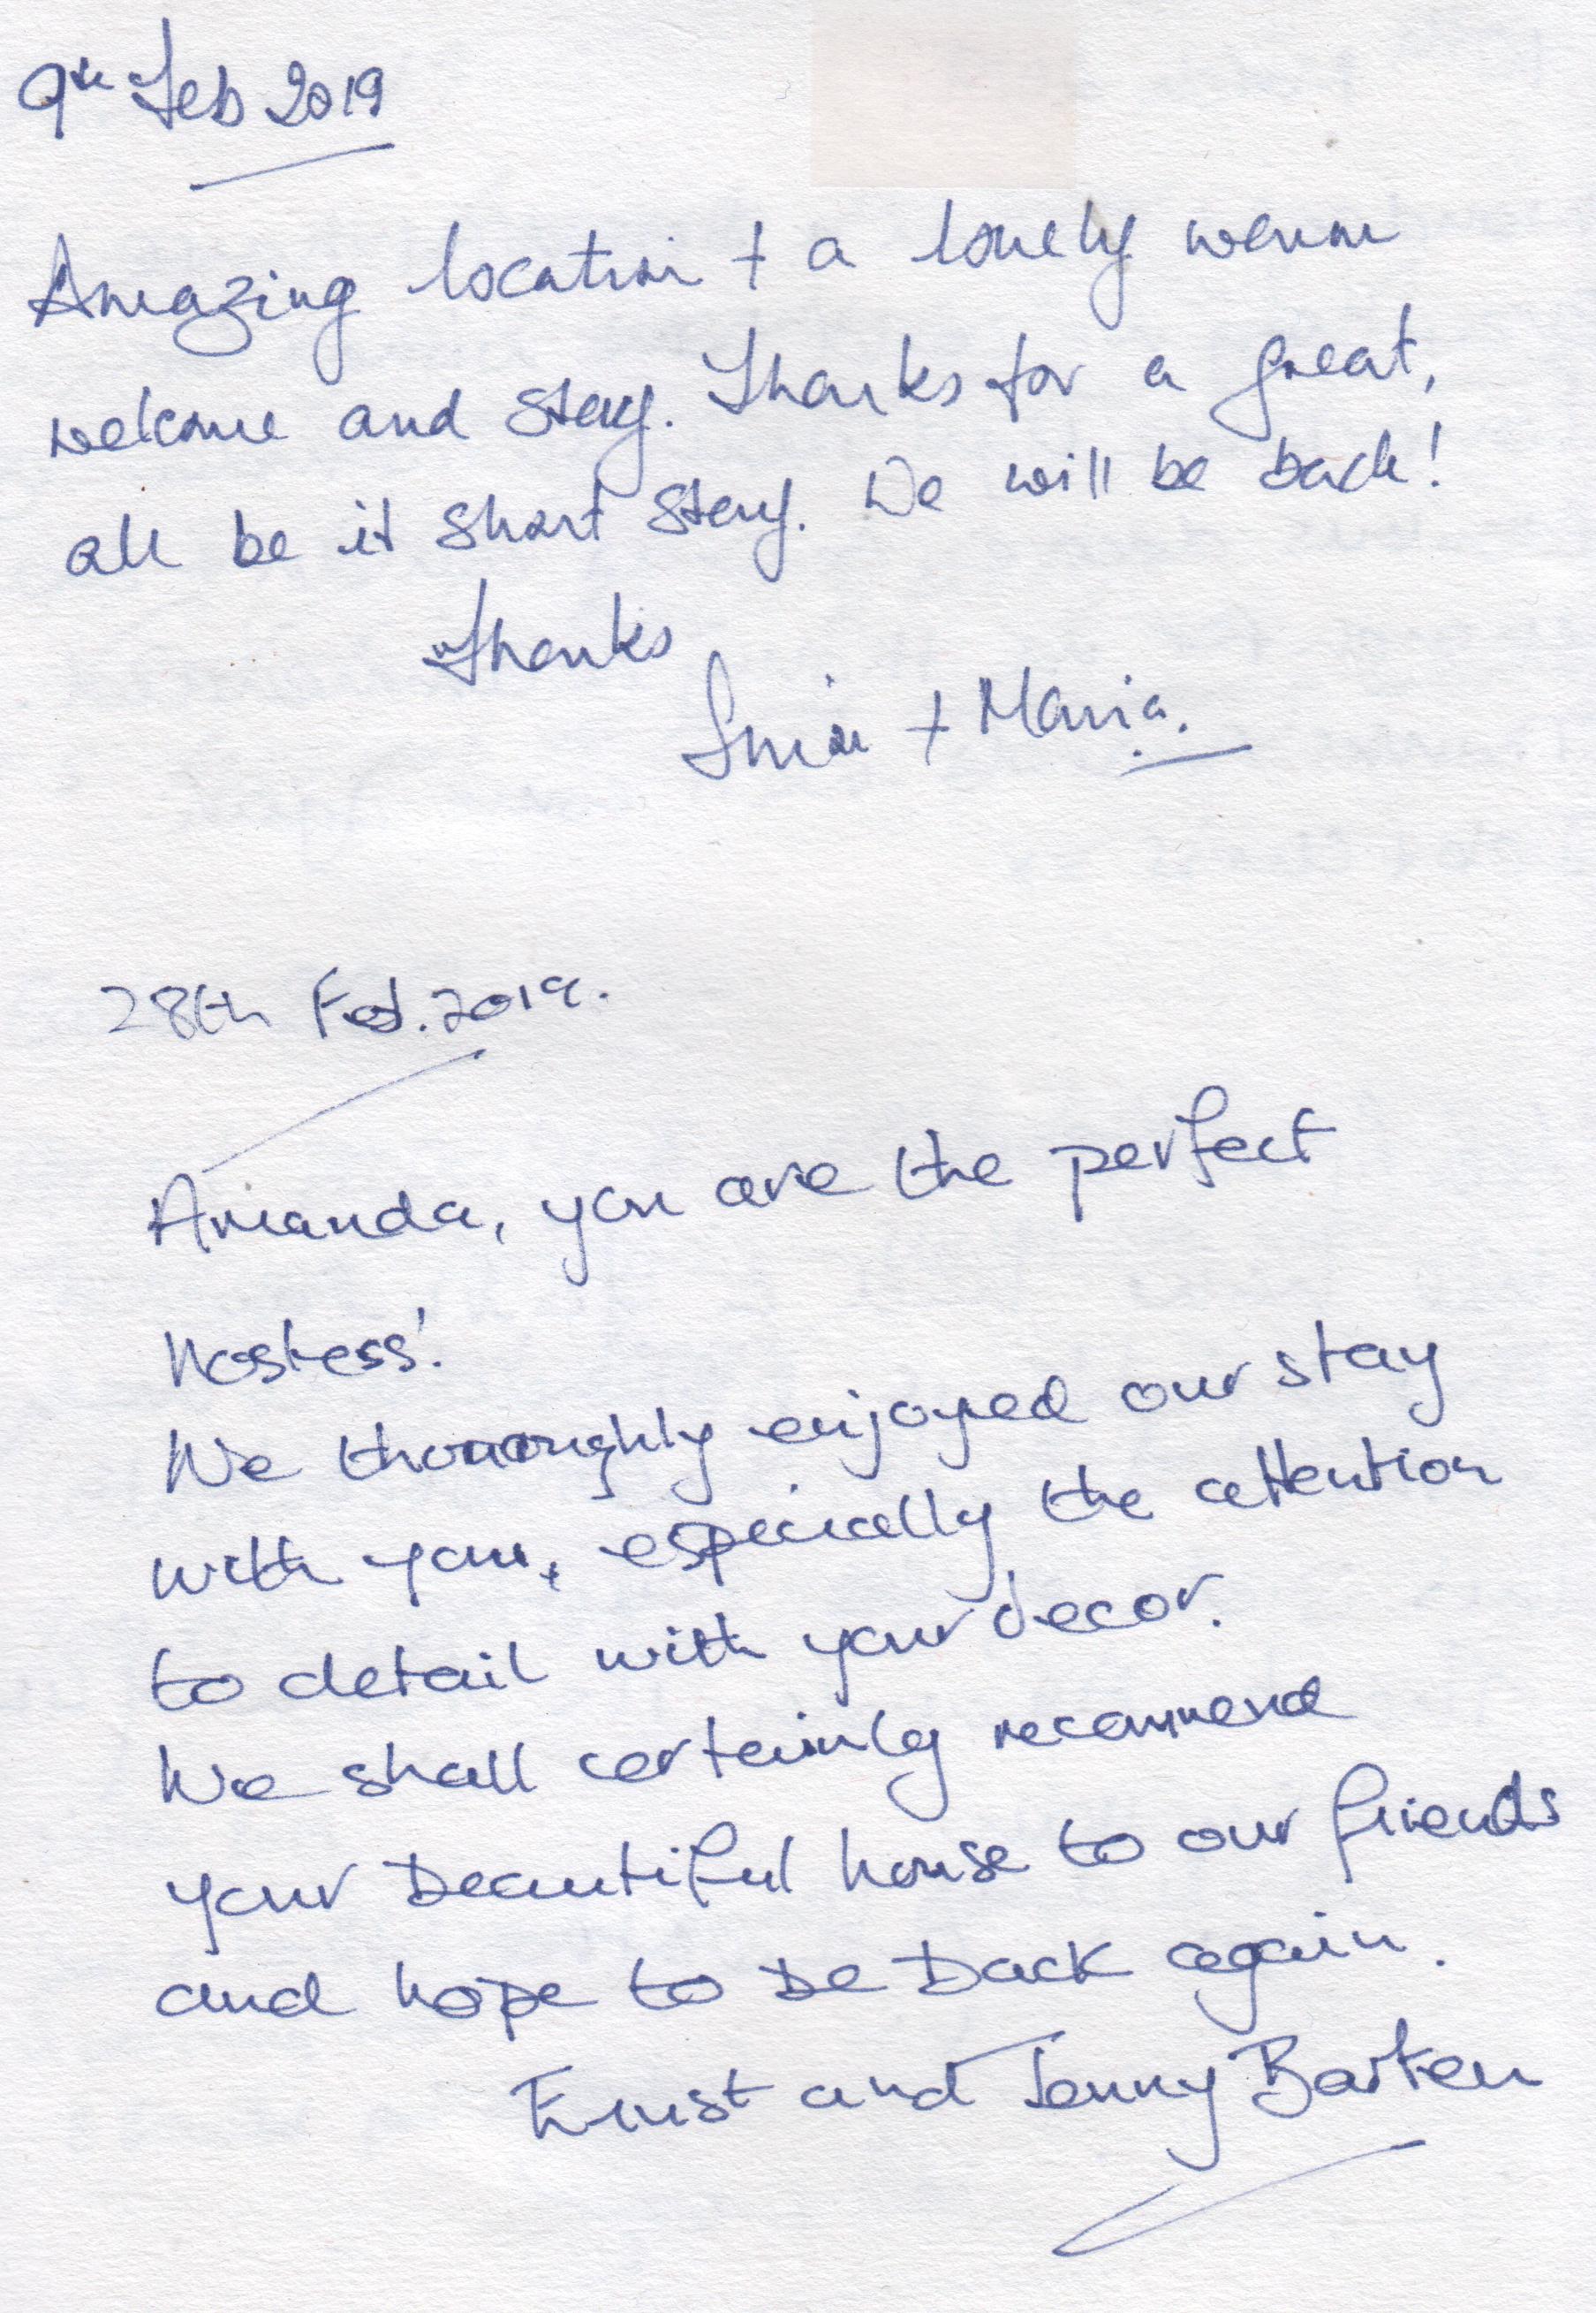 9th Feb 2019
Amazing location + a lovely warm
welcome and stay. Thanks for a great,
all be it short stay. We will be back!
Thanks
+ Maria.
28th Feb. 2019.
Amanda, you are the perfect
hostess!
We thoroughly enjoyed our stay
with you, especially the attention
to detail with your decor.
We shall certainly recommend
your beautiful house to our friends
and hope to be back again.
Ernst and Jenny Barten